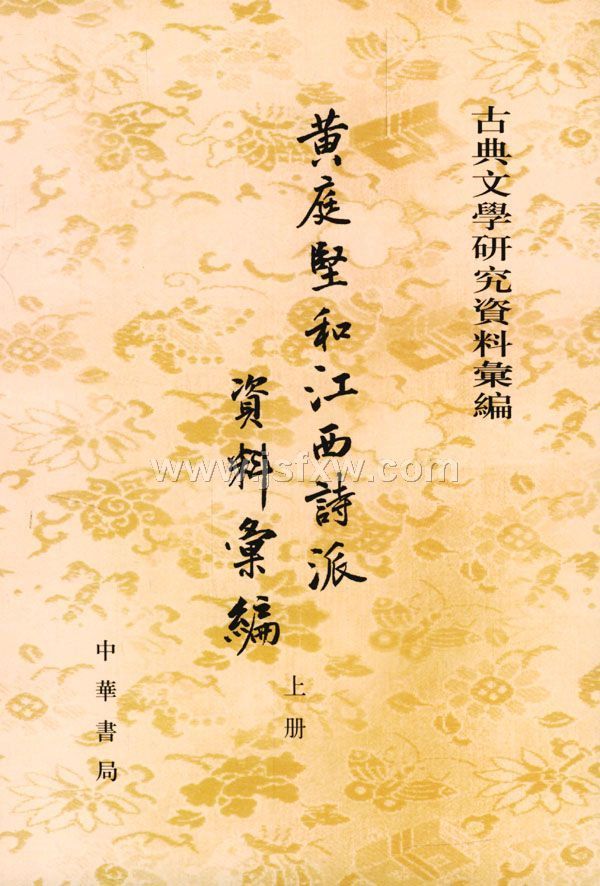 古典文學研究資料彙編
黄庭堅和江西詩派
資料彙編
上册
中華書局
www.jsfxw.com